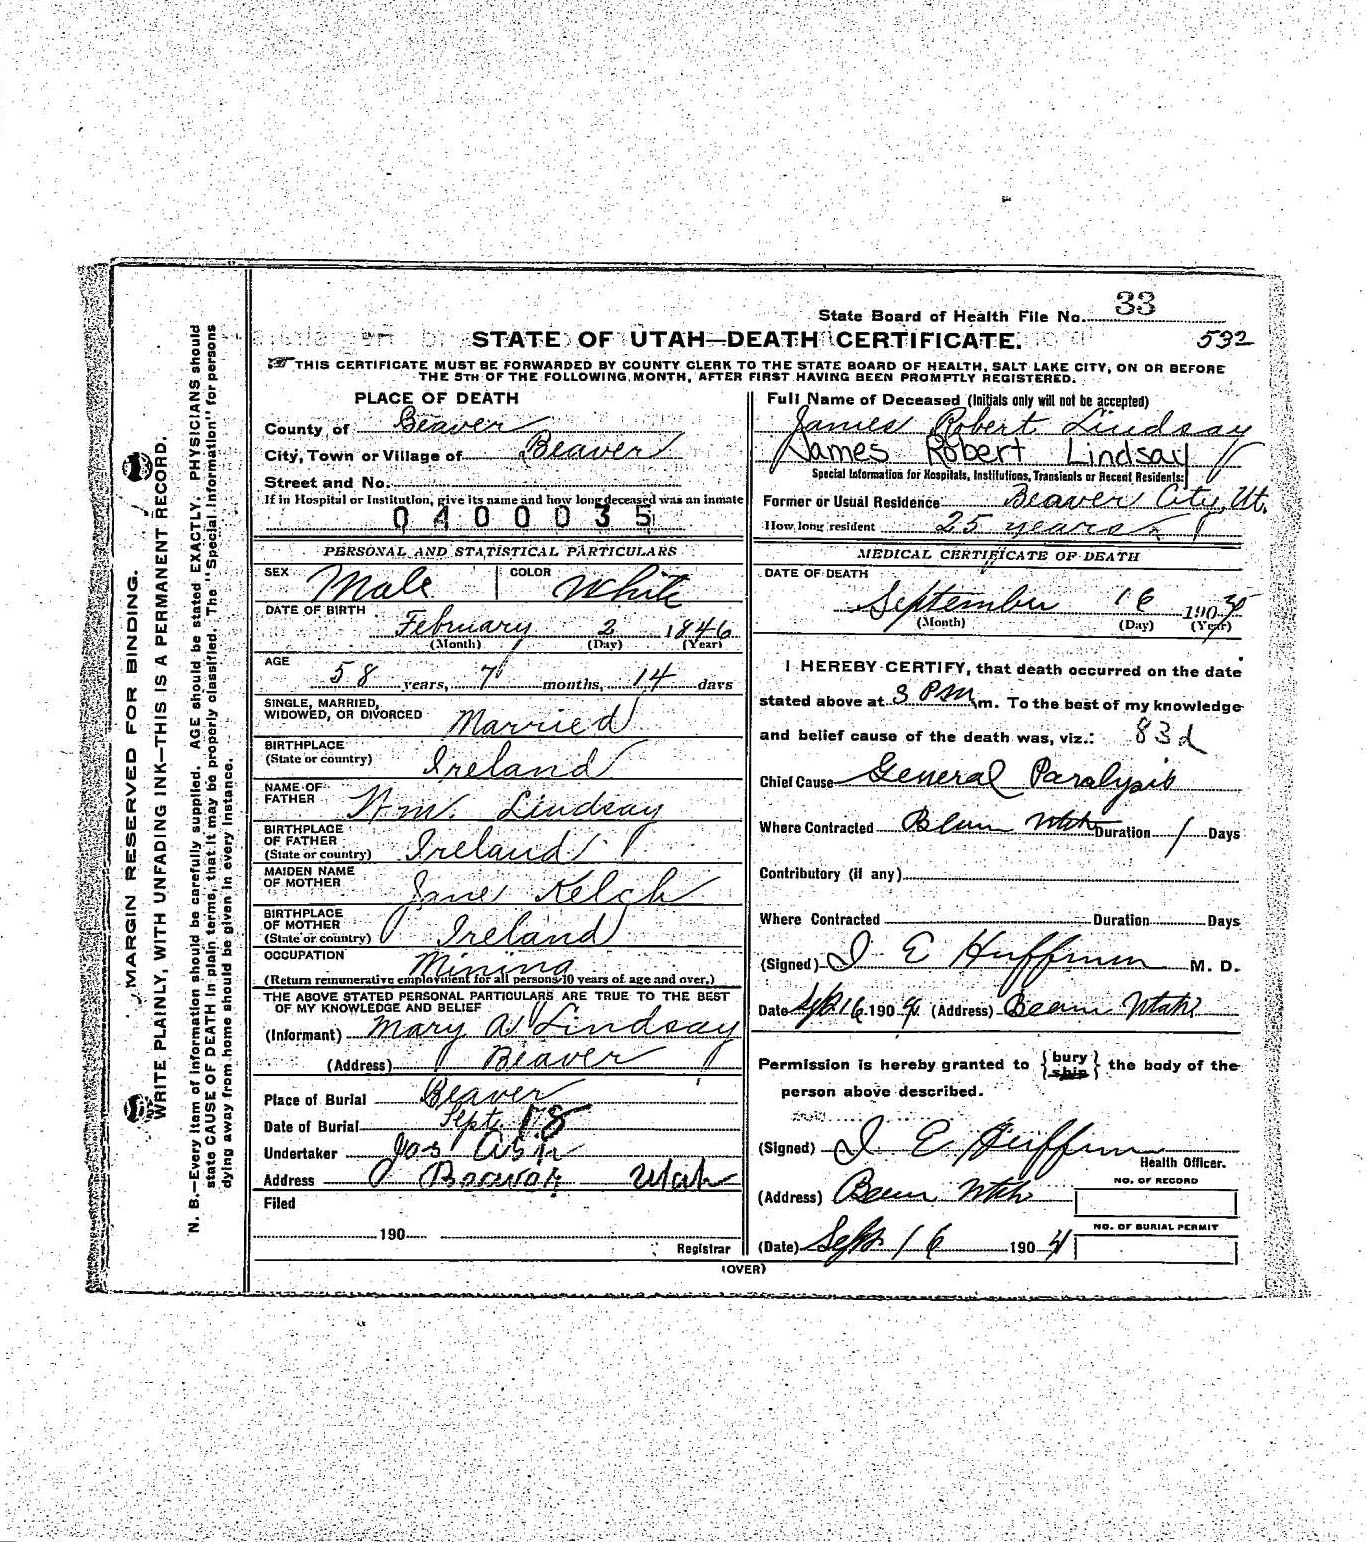 State Board of Health File No. 33
STATE OF UTAH—DEATH CERTIFICATE.
532
THIS CERTIFICATE MUST BE FORWARDED BY COUNTY CLERK TO THE STATE BOARD OF HEALTH, SALT LAKE CITY, ON OR BEFORE
THE 5TH OF THE FOLLOWING MONTH, AFTER FIRST HAVING BEEN PROMPTLY REGISTERED.
MARGIN RESERVED FOR BINDING.
WRITE PLAINLY, WITH UNFADING INK—THIS IS A PERMANENT RECORD.
N. B.—Every item of information should be carefully supplied. AGE should be stated EXACTLY. PHYSICIANS should
state CAUSE OF DEATH in plain terms, that it may be properly classified. The "Special Information" for persons
dying away from home should be given in every instance.
PLACE OF DEATH
County of Beaver
City, Town or Village of Beaver
Street and No.
If in Hospital or Institution, give its name and how long deceased was an inmate
0400035
PERSONAL AND STATISTICAL PARTICULARS
SEX Male COLOR White
DATE OF BIRTH
February 2 1846
(Month) (Day) (Year)
AGE
58 years, 7 months, 14 days
SINGLE, MARRIED,
WIDOWED, OR DIVORCED Married
BIRTHPLACE
(State or country) Ireland
NAME OF
FATHER Wm. Lindsay
BIRTHPLACE
OF FATHER
(State or country) Ireland
MAIDEN NAME
OF MOTHER Jane Kelch
BIRTHPLACE
OF MOTHER
(State or country) Ireland
OCCUPATION Mining
(Return remunerative employment for all persons 10 years of age and over.)
THE ABOVE STATED PERSONAL PARTICULARS ARE TRUE TO THE BEST
OF MY KNOWLEDGE AND BELIEF
(Informant) Mary A. Lindsay
(Address) Beaver
Place of Burial Beaver
Date of Burial Sept. 18
Undertaker Jos
Address Beaver Utah
Filed
190
Registrar
Full Name of Deceased (Initials only will not be accepted)
James Robert Lindsay
James Robert Lindsay
Special Information for Hospitals, Institutions, Transients or Recent Residents:
Former or Usual Residence Beaver City, Ut.
How long resident 25 years
MEDICAL CERTIFICATE OF DEATH
DATE OF DEATH
September 16 1904
(Month) (Day) (Year)
I HEREBY CERTIFY, that death occurred on the date
stated above at 3 PM m. To the best of my knowledge
and belief cause of the death was, viz.: 83d
Chief Cause General Paralysis
Where Contracted Beaver Utah Duration 1 Days
Contributory (if any)
Where Contracted Duration Days
(Signed) M. D.
Date Sept 16 1904 (Address) Beaver Utah
Permission is hereby granted to {bury ship} the body of the
person above described.
(Signed)
Health Officer.
(Address) Beaver Utah
NO. OF RECORD
NO. OF BURIAL PERMIT
(Date) Sept 16 1904
(OVER)